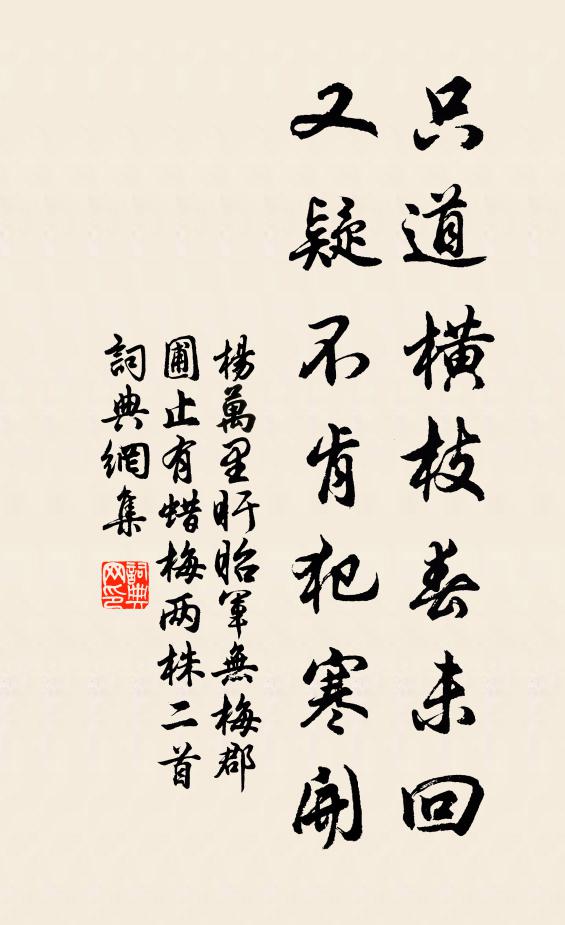 只道橫枝春未回
又疑不肯犯寒開
楊萬里盱眙軍無梅郡
圃止有蜡梅两株二首
詞典網集
詞典网印